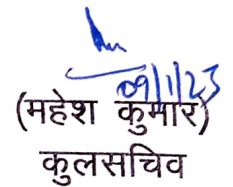 09/1/23
(महेश कुमार)
कुलसचिव